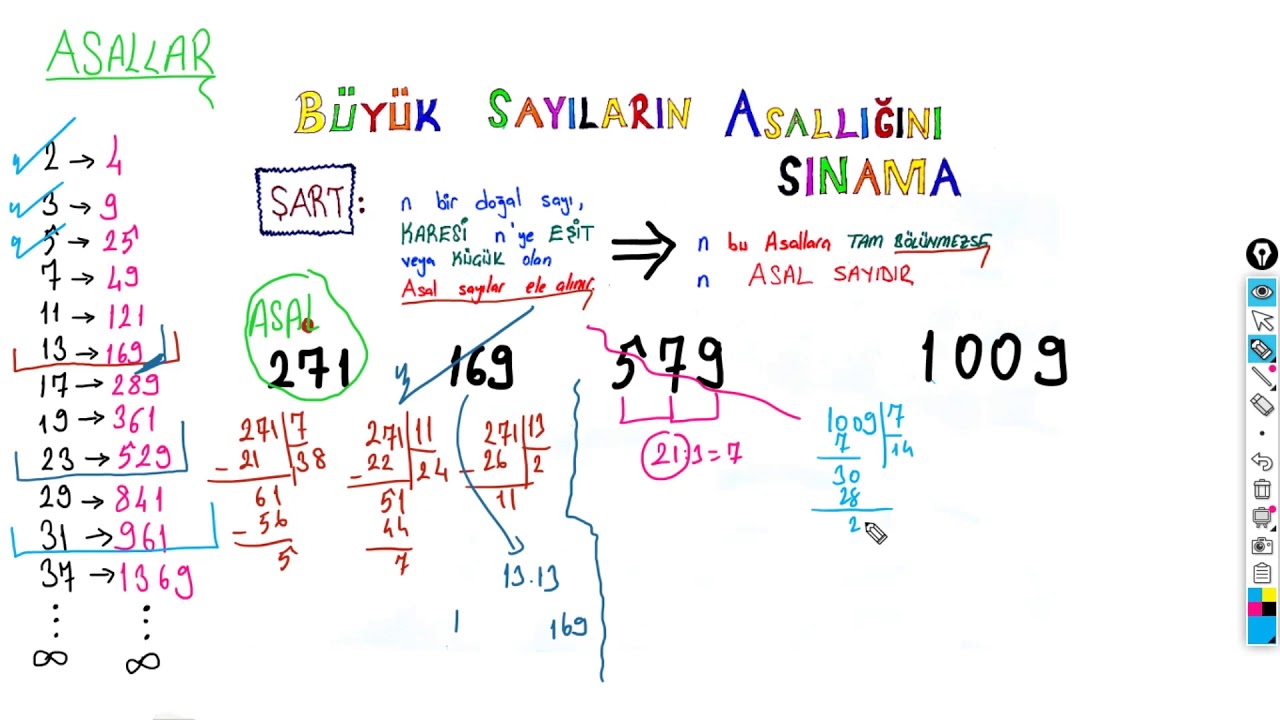 ASALLAR
BÜYÜK SAYILARIN ASALLIĞINI
SINAMA
ŞART:
n bir doğal sayı,
KARESİ n'ye EŞİT
veya KÜÇÜK olan
Asal sayılar ele alınır.
n bu Asallara TAM BÖLÜNMEZSE
n ASAL SAYIDIR
2 → 4
3 → 9
5 → 25
7 → 49
11 → 121
13 → 169
17 → 289
19 → 361
23 → 529
29 → 841
31 → 961
37 → 1369
∞ ∞
ASAL
271 169 579 1009
271 7
- 21 38
61
- 56
5
271 11
- 22 24
51
44
7
271 13
- 26 2
11
13.13
1 169
21:3=7
1009 7
7 14
30
28
2